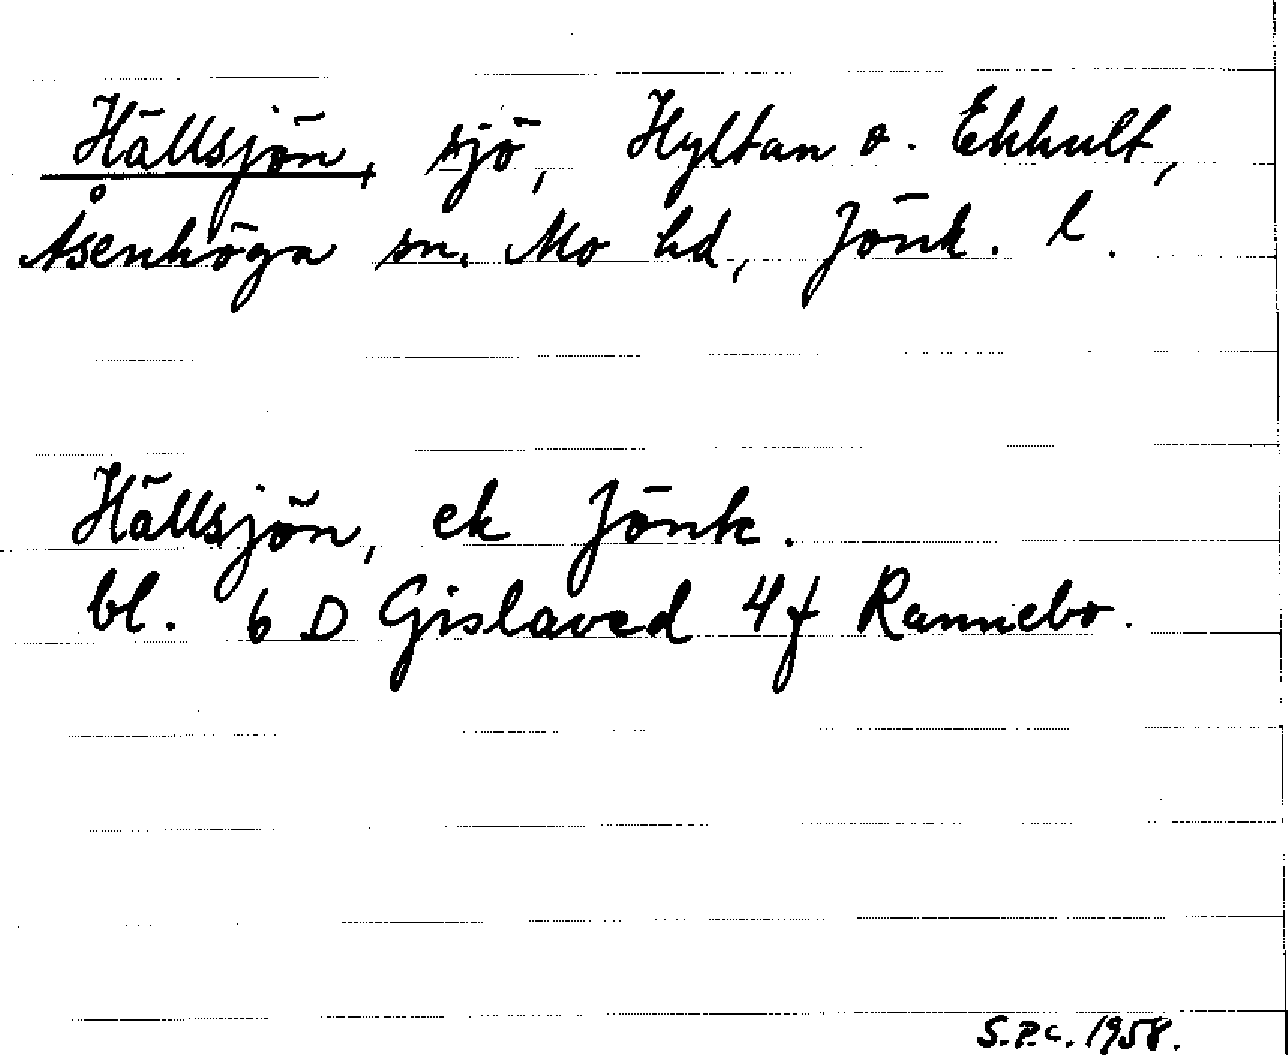 Hällsjön, sjö, Hyltan o. Ekhult,
Åsenhöga sn. Mo hd, Jönk. l.
Hällsjön, ek Jönk.
bl. 6 D Gislaved 4f Rannebo.
S.P.C. 1958.